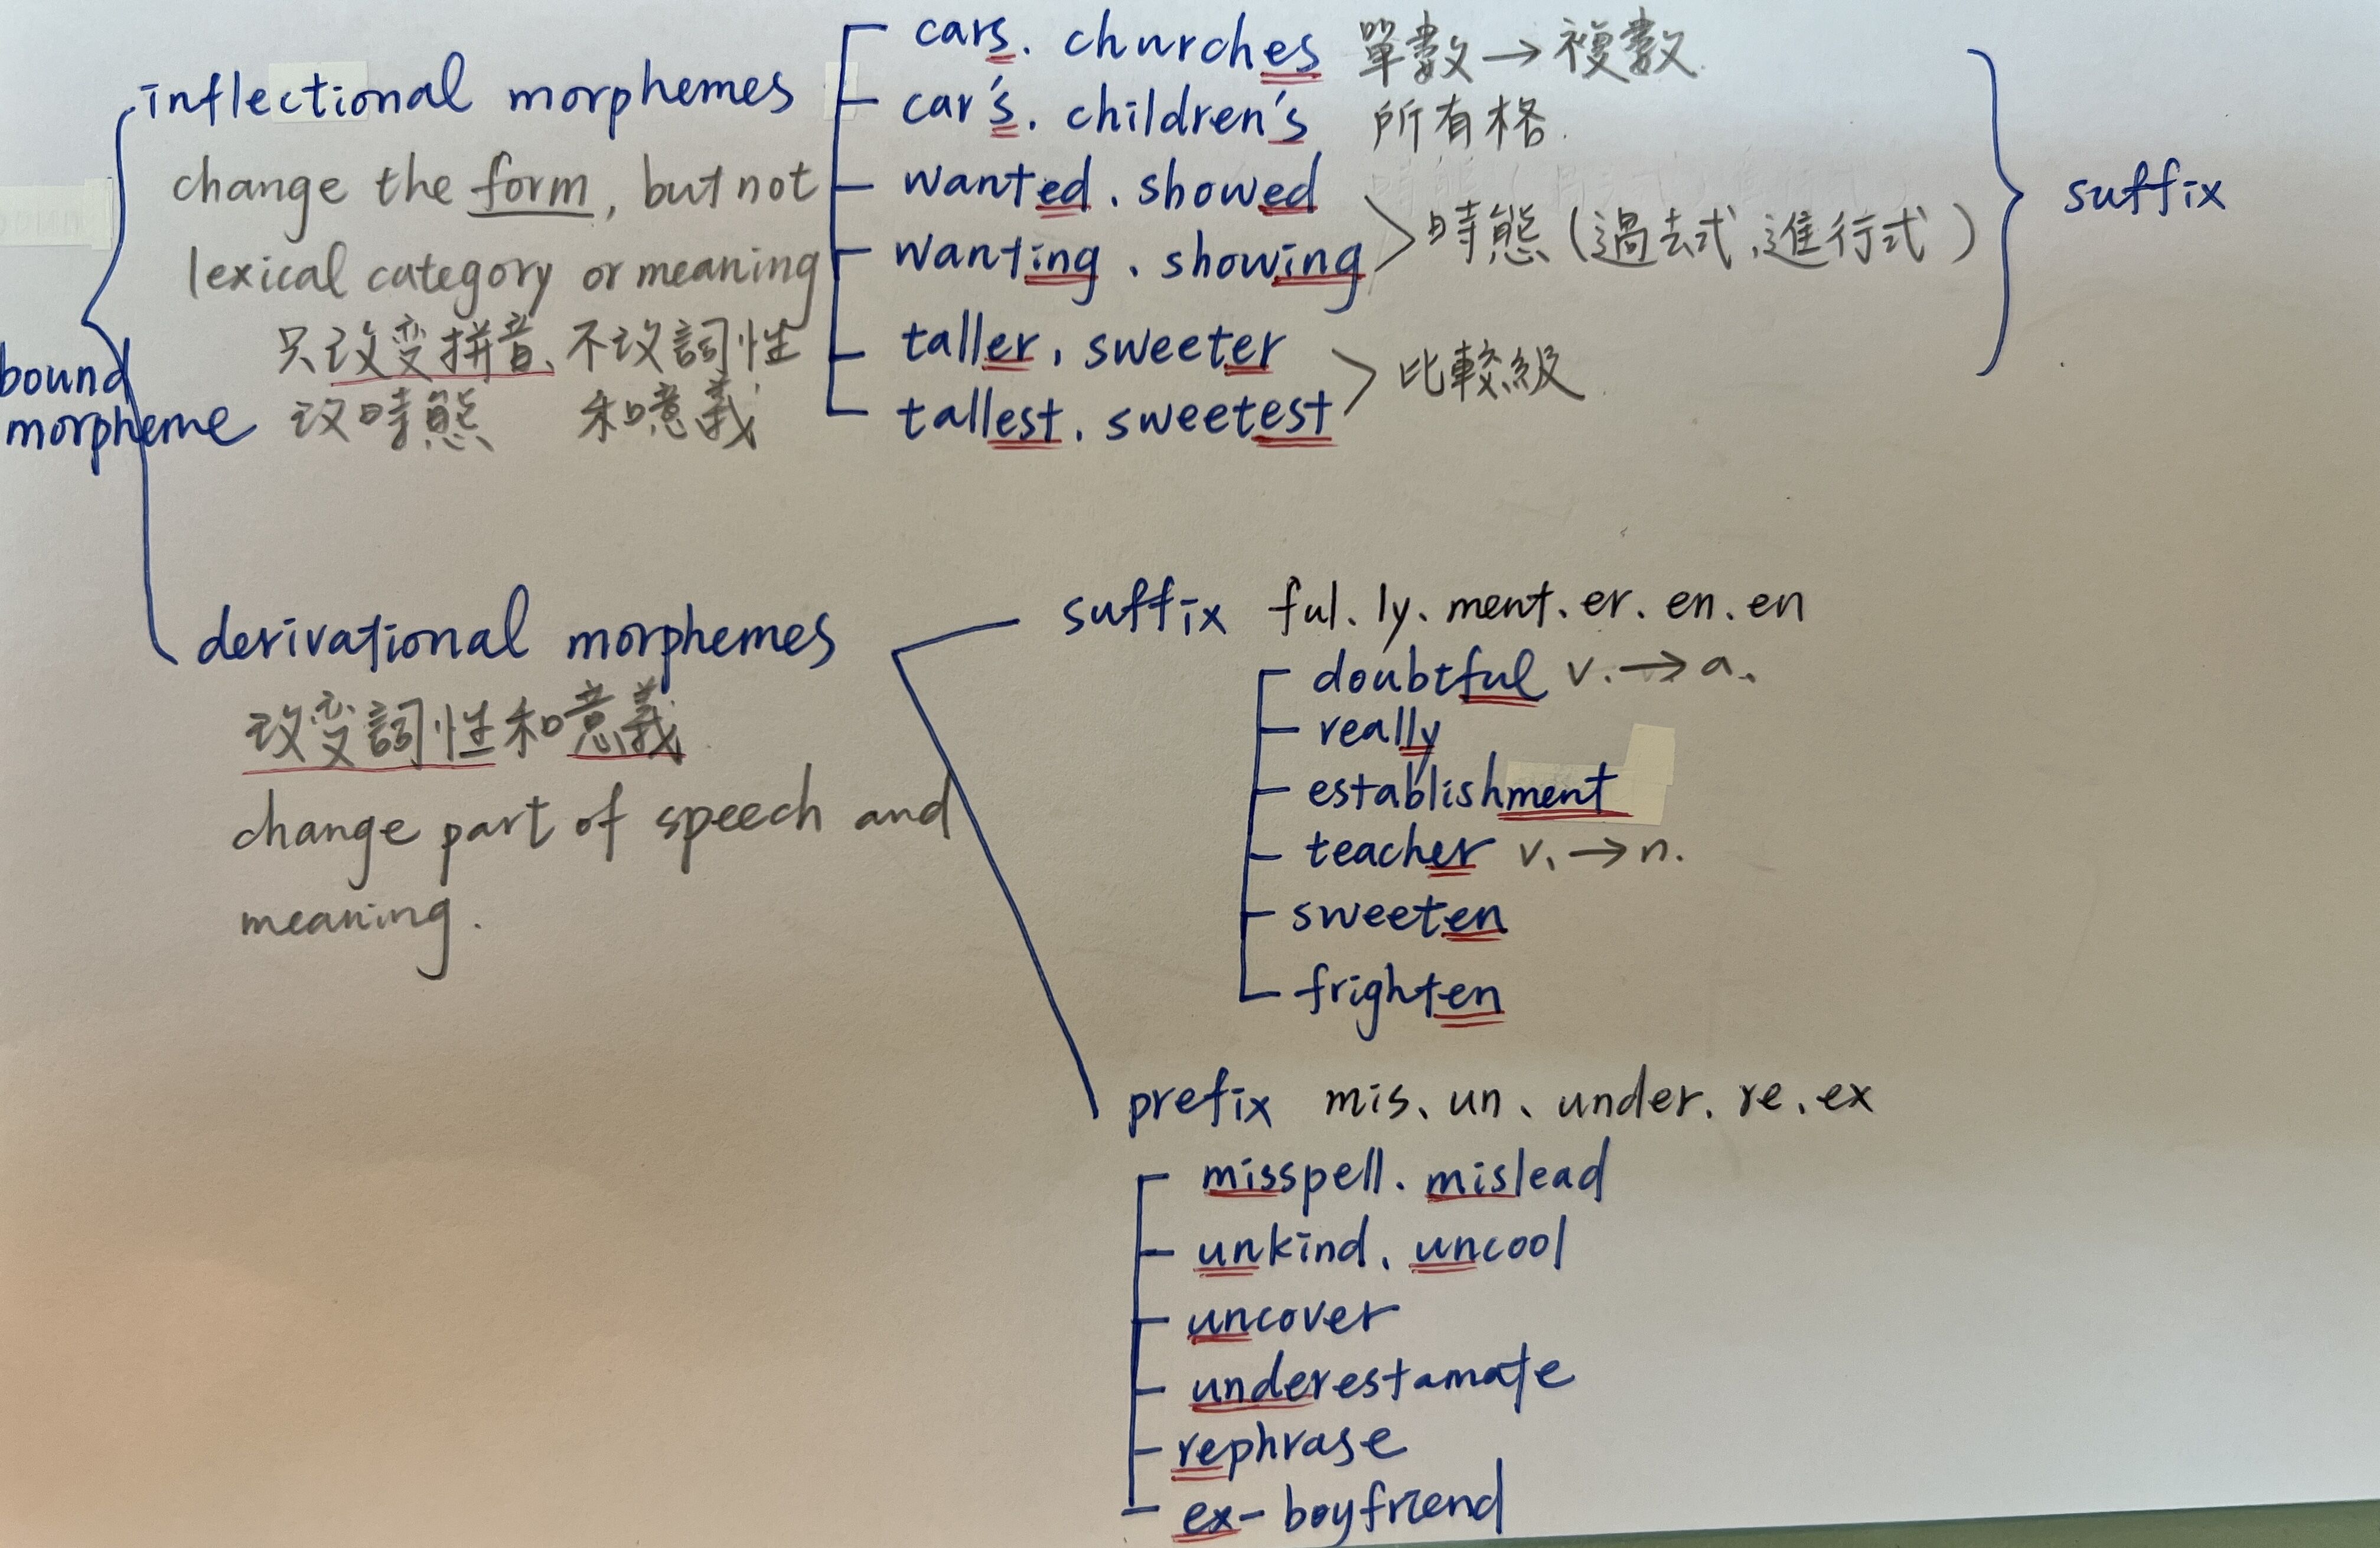 inflectional morphemes
change the form, but not
lexical category or meaning
只改变拼音、不改詞性
改時態 和意義
bound
morpheme
cars. churches 單數→複數.
car's. children's 所有格.
wanted. showed
wanting. showing
時態(過去式、進行式)
taller. sweeter
tallest. sweetest
比較級
suffix
derivational morphemes
改变詞性和意義
change part of speech and
meaning.
suffix ful. ly. ment. er. en. en
doubtful v. → a.
really
establishment
teacher v. → n.
sweeten
frighten
prefix mis. un. under. re. ex
misspell. mislead
unkind. uncool
uncover
underestamate
rephrase
ex-boyfriend